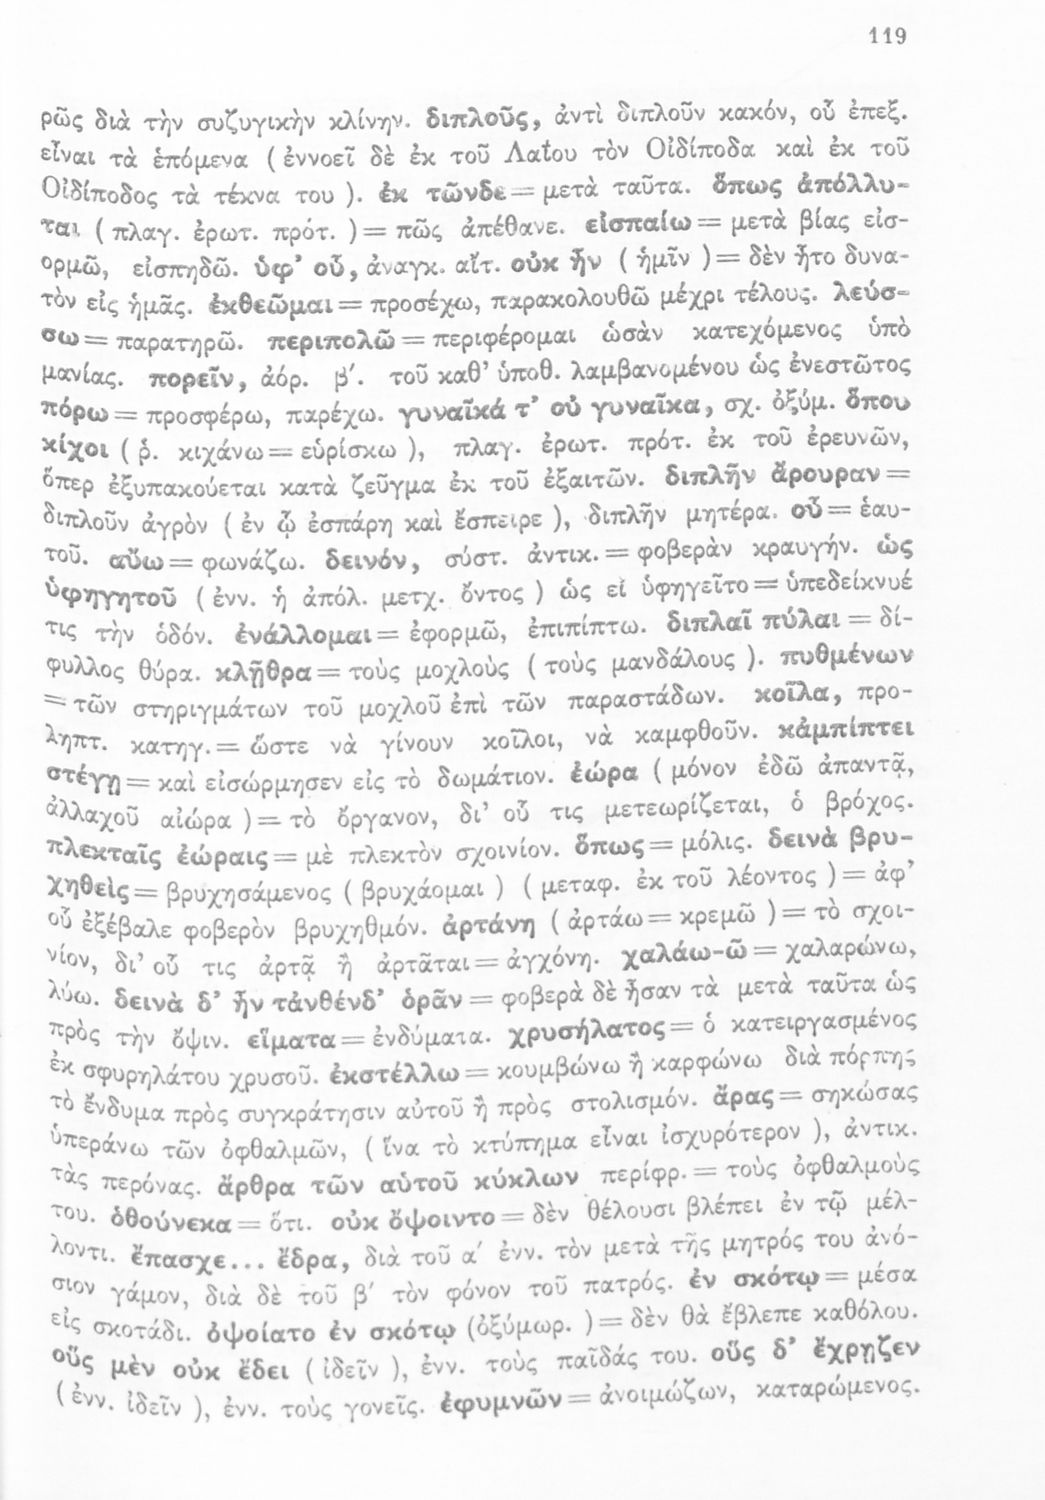 119
ρῶς διὰ τὴν συζυγικὴν κλίνην. διπλοῦς, ἀντὶ διπλοῦν κακόν, οὗ ἐπεξ.
εἶναι τὰ ἑπόμενα ( ἐννοεῖ δὲ ἐκ τοῦ Λαΐου τὸν Οἰδίποδα καὶ ἐκ τοῦ
Οἰδίποδος τὰ τέκνα του ). ἐκ τῶνδε = μετὰ ταῦτα. ὅπως ἀπόλλυ-
ται ( πλαγ. ἐρωτ. πρότ. ) = πῶς ἀπέθανε. εἰσπαίω = μετὰ βίας εἰσ-
ορμῶ, εἰσπηδῶ. ὑφ' οὗ, ἀναγκ. αἴτ. οὐκ ἦν ( ἡμῖν ) = δὲν ἦτο δυνα-
τὸν εἰς ἡμᾶς. ἐκθεῶμαι = προσέχω, παρακολουθῶ μέχρι τέλους. λεύσ-
σω = παρατηρῶ. περιπολῶ = περιφέρομαι ὡσὰν κατεχόμενος ὑπὸ
μανίας. πορεῖν, ἀόρ. β'. τοῦ καθ' ὑποθ. λαμβανομένου ὡς ἐνεστῶτος
πόρω = προσφέρω, παρέχω. γυναῖκά τ' οὐ γυναῖκα, σχ. ὀξύμ. ὅπου
κίχοι ( ῥ. κιχάνω = εὑρίσκω ), πλαγ. ἐρωτ. πρότ. ἐκ τοῦ ἐρευνῶν,
ὅπερ ἐξυπακούεται κατὰ ζεῦγμα ἐκ τοῦ ἐξαιτῶν. διπλῆν ἄρουραν =
διπλοῦν ἀγρὸν ( ἐν ᾧ ἐσπάρη καὶ ἔσπειρε ), διπλῆν μητέρα. οὗ = ἑαυ-
τοῦ. αὔω = φωνάζω. δεινόν, σύστ. ἀντικ. = φοβερὰν κραυγήν. ὡς
ὑφηγητοῦ ( ἐνν. ἡ ἀπόλ. μετχ. ὄντος ) ὡς εἰ ὑφηγεῖτο = ὑπεδείκνυέ
τις τὴν ὁδόν. ἐνάλλομαι = ἐφορμῶ, ἐπιπίπτω. διπλαῖ πύλαι = δί-
φυλλος θύρα. κλῇθρα = τοὺς μοχλοὺς ( τοὺς μανδάλους ). πυθμένων
= τῶν στηριγμάτων τοῦ μοχλοῦ ἐπὶ τῶν παραστάδων. κοῖλα, προ-
ληπτ. κατηγ. = ὥστε νὰ γίνουν κοῖλοι, νὰ καμφθοῦν. κἀμπίπτει
στέγῃ = καὶ εἰσώρμησεν εἰς τὸ δωμάτιον. ἐώρα ( μόνον ἐδῶ ἀπαντᾷ,
ἀλλαχοῦ αἰώρα ) = τὸ ὄργανον, δι' οὗ τις μετεωρίζεται, ὁ βρόχος.
πλεκταῖς ἐώραις = μὲ πλεκτὸν σχοινίον. ὅπως = μόλις. δεινὰ βρυ-
χηθεὶς = βρυχησάμενος ( βρυχάομαι ) ( μεταφ. ἐκ τοῦ λέοντος ) = ἀφ'
οὗ ἐξέβαλε φοβερὸν βρυχηθμόν. ἀρτάνη ( ἀρτάω = κρεμῶ ) = τὸ σχοι-
νίον, δι' οὗ τις ἀρτᾷ ἢ ἀρτᾶται = ἀγχόνη. χαλάω-ῶ = χαλαρώνω,
λύω. δεινὰ δ' ἦν τἀνθένδ' ὁρᾶν = φοβερὰ δὲ ἦσαν τὰ μετὰ ταῦτα ὡς
πρὸς τὴν ὄψιν. εἵματα = ἐνδύματα. χρυσήλατος = ὁ κατειργασμένος
ἐκ σφυρηλάτου χρυσοῦ. ἐκστέλλω = κουμβώνω ἢ καρφώνω διὰ πόρπης
τὸ ἔνδυμα πρὸς συγκράτησιν αὐτοῦ ἢ πρὸς στολισμόν. ἄρας = σηκώσας
ὑπεράνω τῶν ὀφθαλμῶν, ( ἵνα τὸ κτύπημα εἶναι ἰσχυρότερον ), ἀντικ.
τὰς περόνας. ἄρθρα τῶν αὑτοῦ κύκλων περίφρ. = τοὺς ὀφθαλμοὺς
του. ὁθούνεκα = ὅτι. οὐκ ὄψοιντο = δὲν θέλουσι βλέπει ἐν τῷ μέλ-
λοντι. ἔπασχε... ἔδρα, διὰ τοῦ α' ἐνν. τὸν μετὰ τῆς μητρός του ἀνό-
σιον γάμον, διὰ δὲ τοῦ β' τὸν φόνον τοῦ πατρός. ἐν σκότῳ = μέσα
εἰς σκοτάδι. ὀψοίατο ἐν σκότῳ (ὀξύμωρ. ) = δὲν θὰ ἔβλεπε καθόλου.
οὓς μὲν οὐκ ἔδει ( ἰδεῖν ), ἐνν. τοὺς παῖδάς του. οὓς δ' ἔχρῃζεν
( ἐνν. ἰδεῖν ), ἐνν. τοὺς γονεῖς. ἐφυμνῶν = ἀνοιμώζων, καταρώμενος.